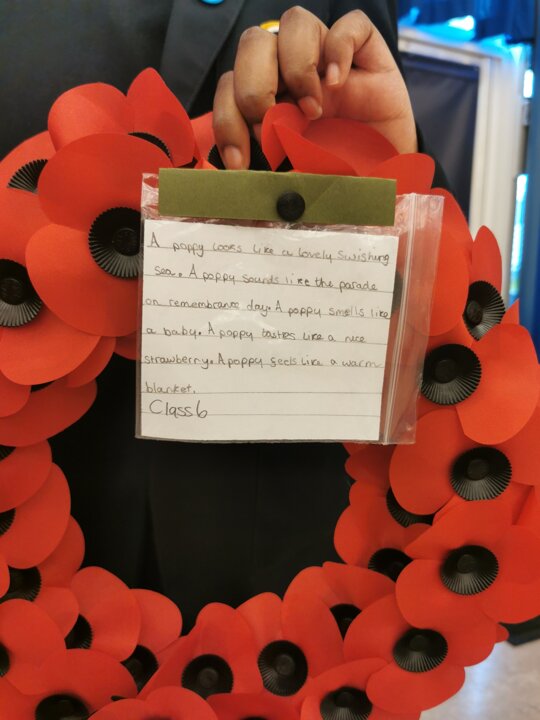 A poppy looks like a lovely swishing
sea. A poppy sounds like the parade
on remembrance day. A poppy smells like
a baby. A poppy tastes like a nice
strawberry. A poppy feels like a warm
blanket.
Class 6